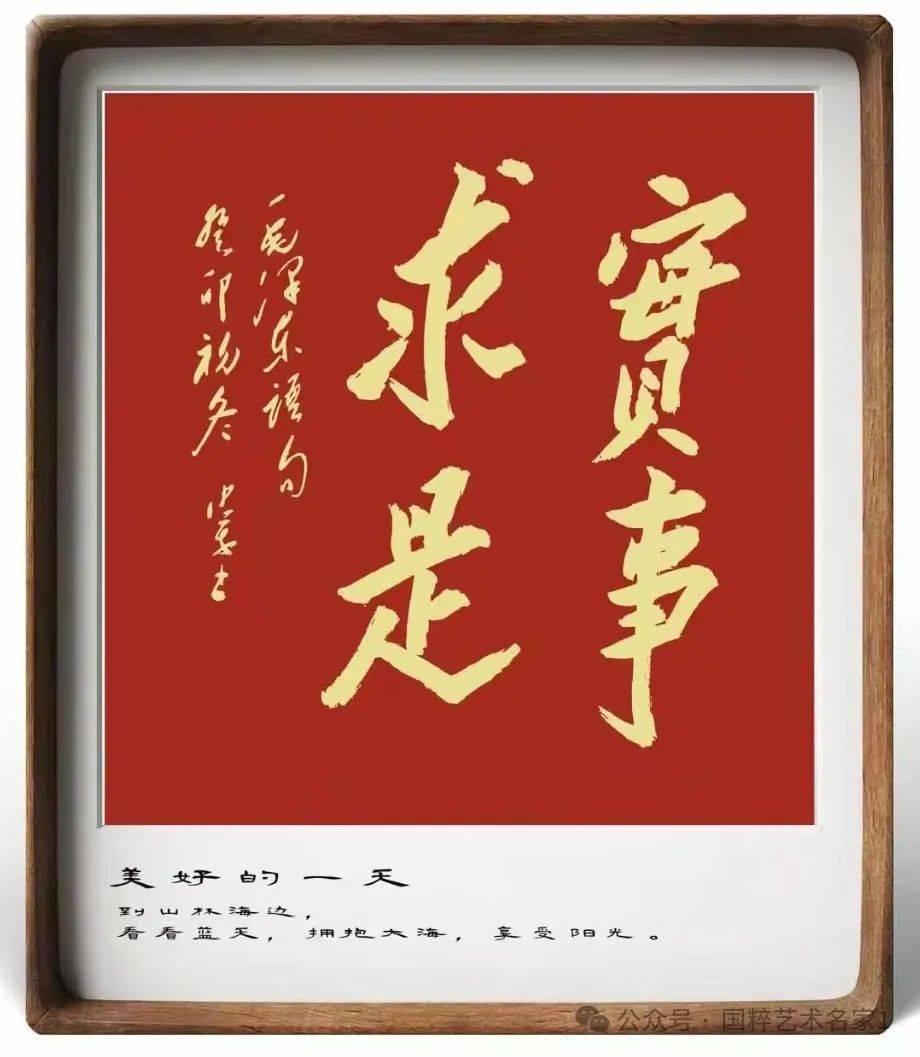 實事
求是
毛澤东語句
癸卯初冬
美好的一天
到山林海边，
看看蓝天，拥抱大海，享受阳光。
公众号·国粹艺术名家1